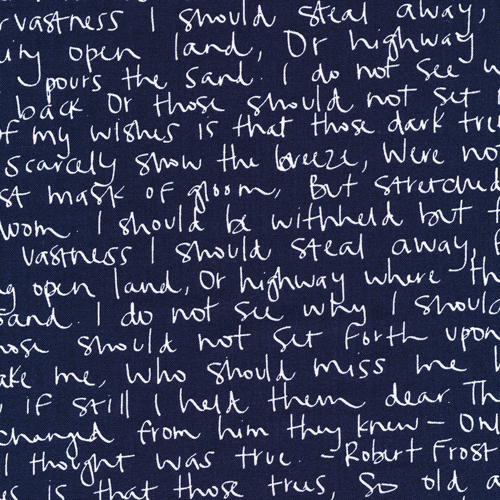 vastness I should steal away,
open land, Or highway
pours the sand. I do not see
back Or those should not set
my wishes is that those dark
scarcely show the breeze, Were
mask of gloom, But stretched
I should be withheld but
vastness I should steal away,
open land, Or highway where
sand. I do not see why I should
should not set forth upon
me, who should miss me
if still I held them dear.
changed from him they knew -
I thought was true. - Robert Frost
is that those trees, So old